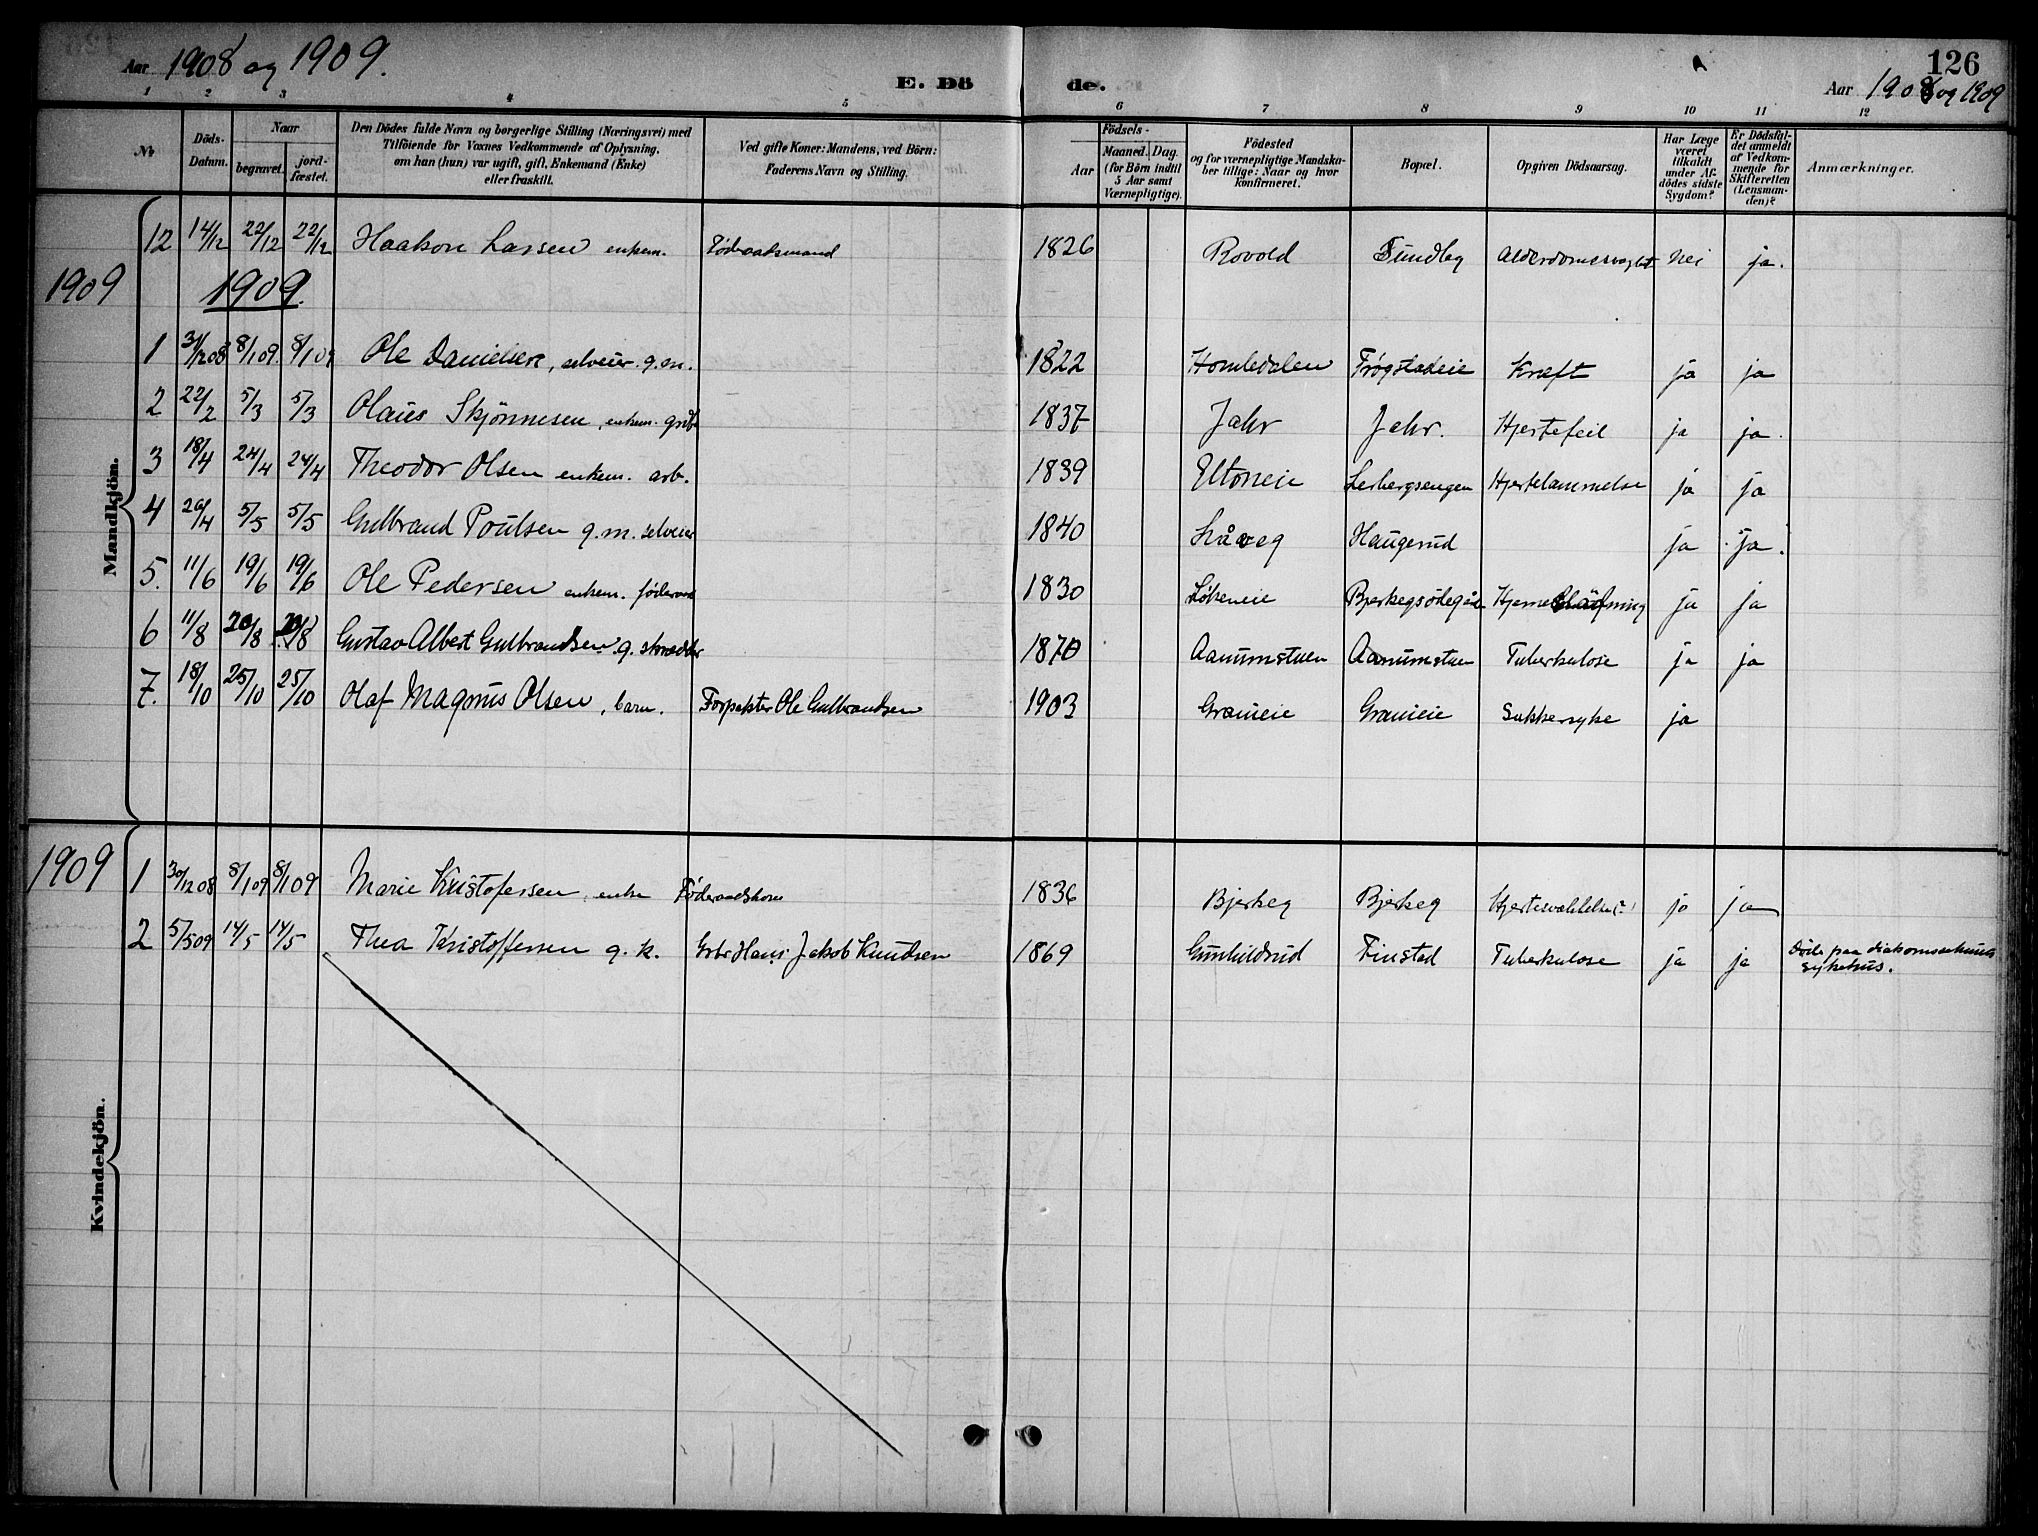 Aar 1908 og 1909.
E. Dö
de.
126
Aar 1908 og 1909
1 2 3 4 5 6 7 8 9 10 11 12
No
Döds-
Datum.
Naar
begravet.
jord-
fæstet.
Den Dödes fulde Navn og borgerlige Stilling (Næringsvei) med
Tilföiende for Voxnes Vedkommende af Oplysning,
om han (hun) var ugift, gift, Enkemand (Enke)
eller fraskilt.
Ved gifte Koner: Mandens, ved Börn:
Faderens Navn og Stilling.
Födsels-
Aar
Maaned. Dag.
(for Börn indtil
5 Aar samt
Værnepligtige).
Födested
og for værnepligtige Mandska-
ber tillige: Naar og hvor
konfirmeret.
Bopæl.
Opgiven Dödsaarsag.
Har Læge
været
tilkaldt
under Af-
dödes sidste
Sygdom?
Er Dödsfal-
det anmeldt
af Vedkom-
mende for
Skifteretten
(Lensman-
den)?
Anmærkninger.
Mandkjön.
12 14/12 22/12 22/12 Haakon Larsen enkem. Föderaadsmand 1826 Rovold Fundby Nei ja.
1909 1909.
1 31/12 08 8/1 09. 8/1 09 Ole Danielsen, selveier. g.m. 1822 Homledalen Frøgstadeie Kræft ja ja
2 22/2 5/3 5/3 Olaus Skjönnesen, enkem. 1837 Jahr Jahr. Hjertefeil ja ja.
3 18/4 24/4 24/4 Theodor Olsen enkem. arb. 1839 Eltoneie Lerbergsengen Hjertelammelse ja ja
4 26/4 5/5 5/5 Gulbrand Poulsen g.m. selveier 1840 Haugerud ja ja.
5. 11/6 19/6 19/6 Ole Pedersen enkem. föderaad 1830 Løkeneie ja ja
6 11/8 20/8 20/8 Gustav Albert Gulbrandsen. g. skrædder 1870 Aanumstuen Aanumstuen Tuberkulose ja ja
7. 18/10 25/10 25/10 Olaf Magnus Olsen, barn. Forpakter Ole Gulbrandsen 1903 Grameie Grameie Sukkersyke ja
Kvindekjön.
1909 1 30/12 08 8/1 09 8/1 09 Marie Kristofersen, enke Föderaadskone 1836 Bjerkeg Bjerkeg ja ja
2 5/5 09 14/5 14/5 Thea Kristoffersen g. k. Grbr Hans Jakob Knudsen 1869 Gunhildsrud Finstad Tuberkulose ja ja Döde paa
sykehus.